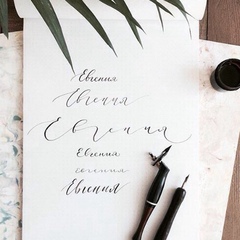 Евгения
Евгения
Евгения
Евгения
евгения
Евгения